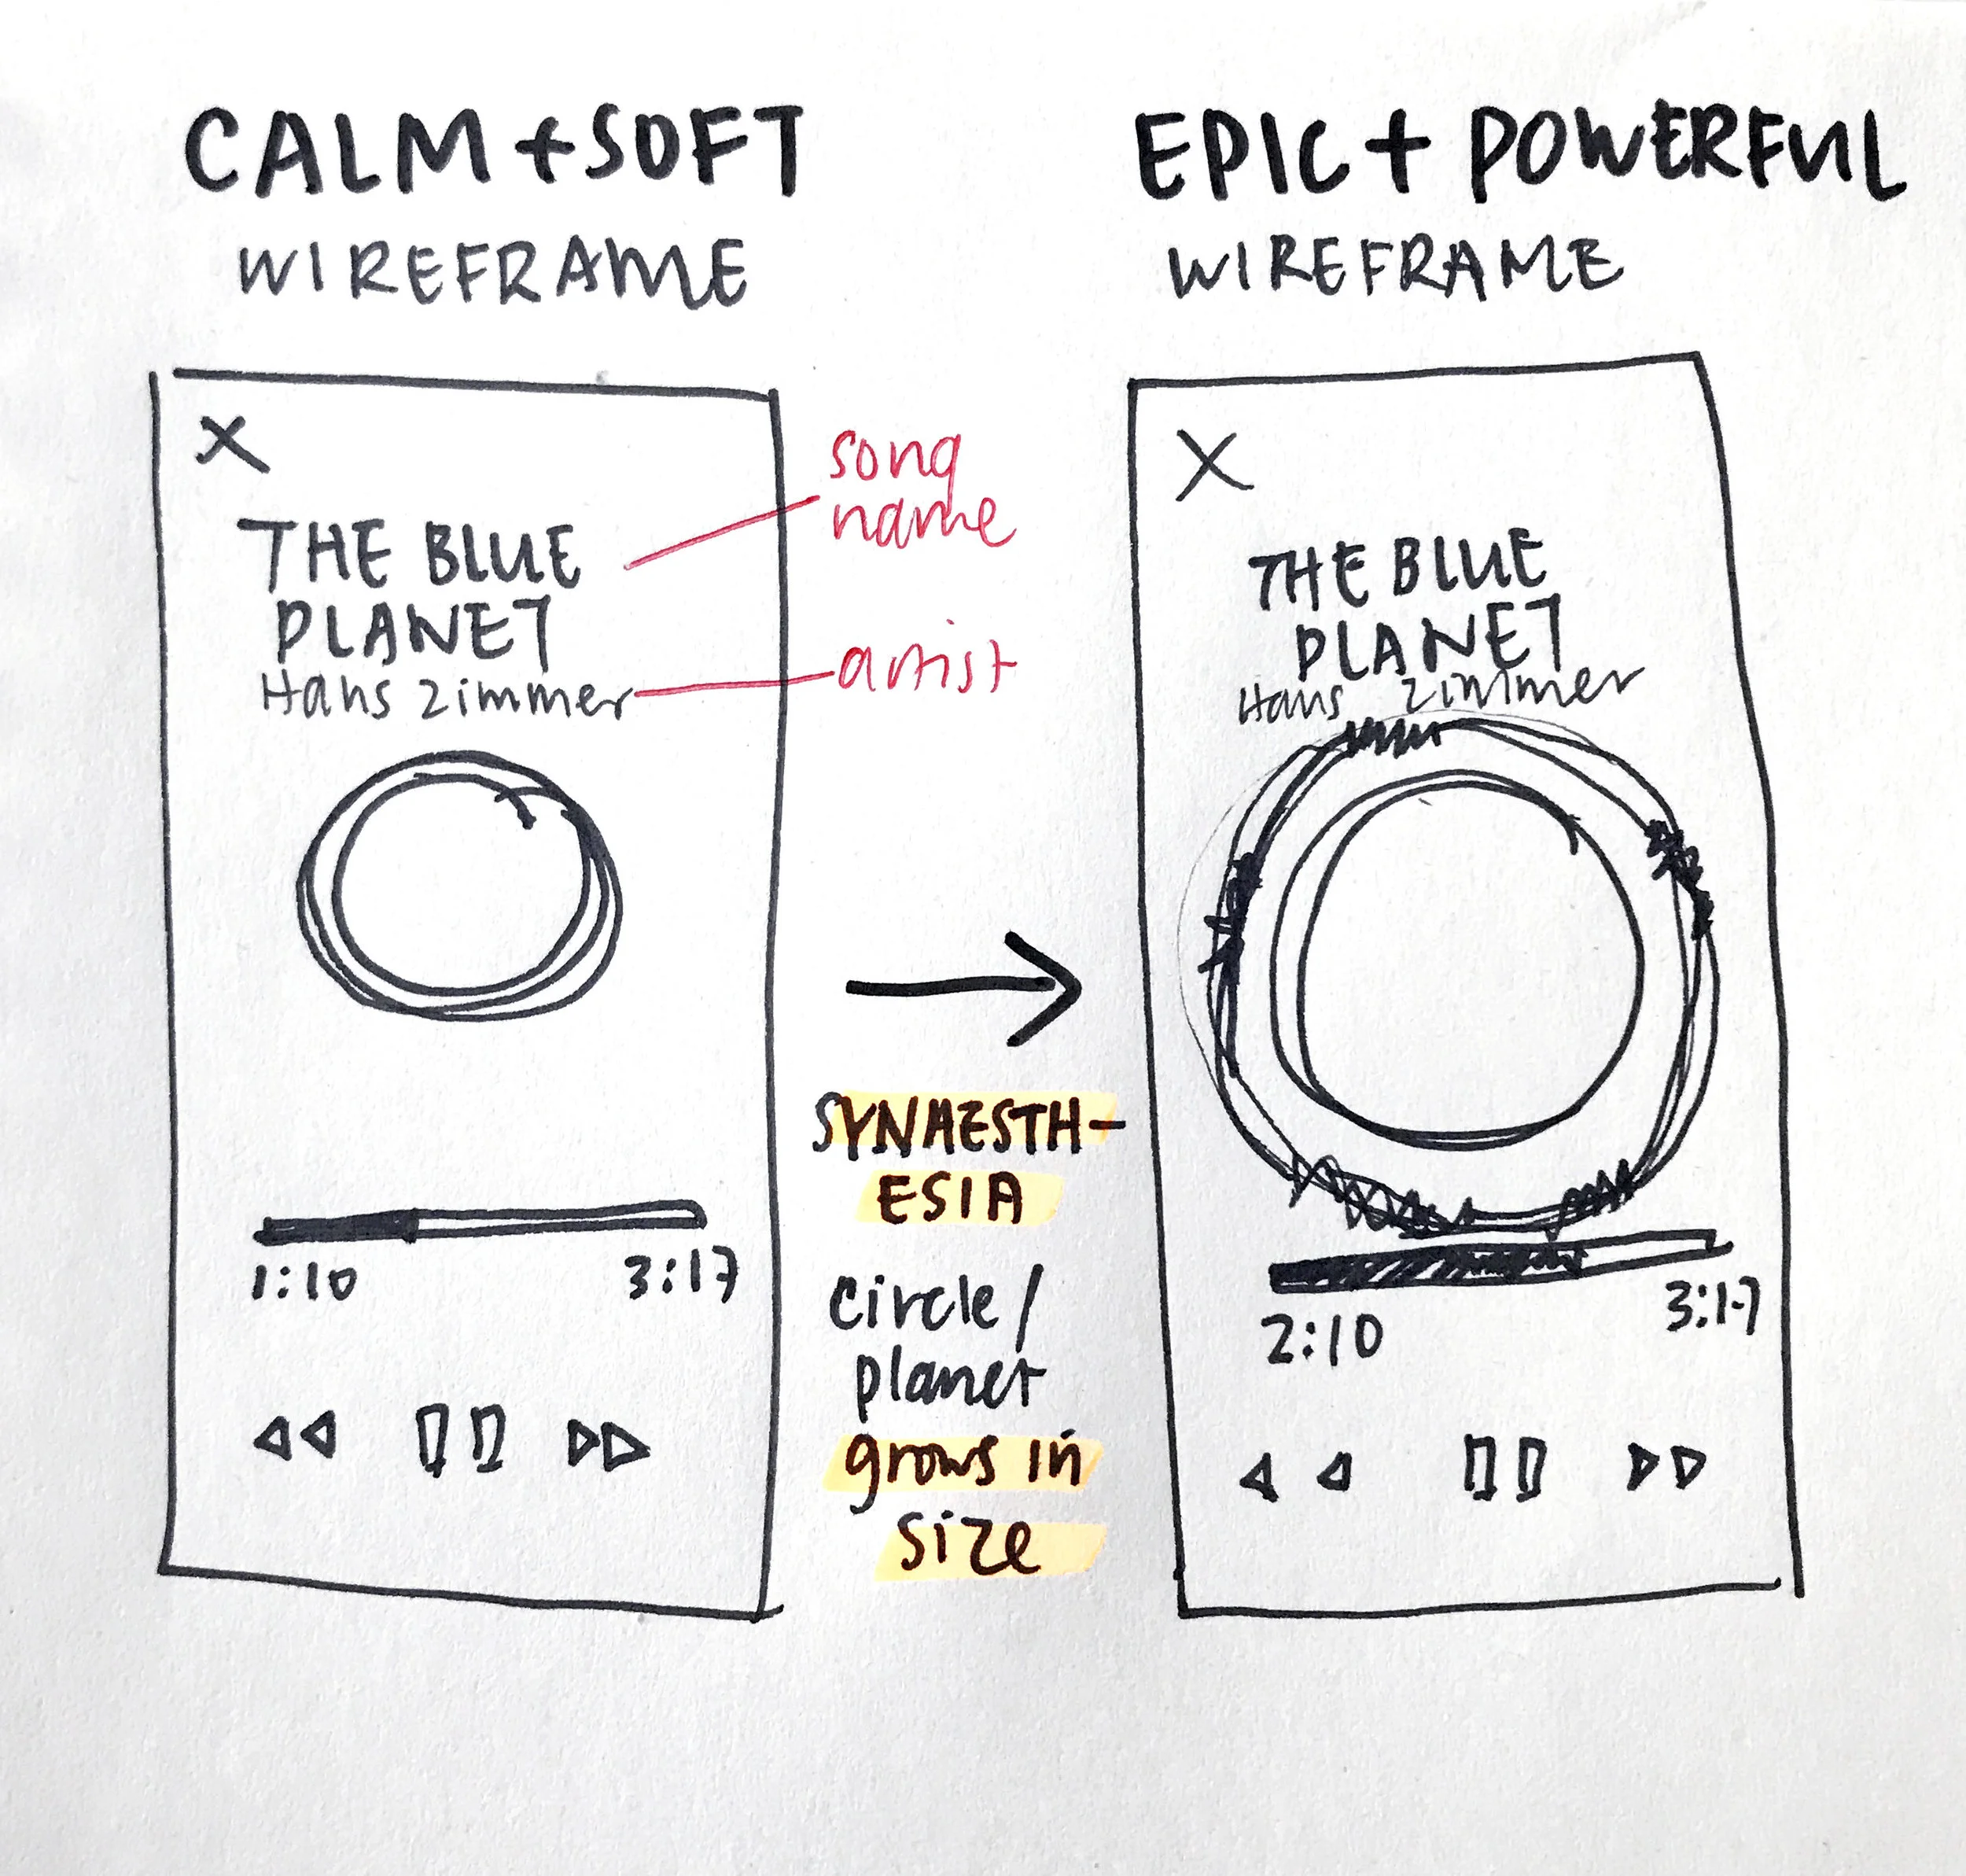 CALM + SOFT
WIREFRAME
X
THE BLUE
PLANET
Hans Zimmer
1:10
3:17
song
name
artist
SYNAESTH-
ESIA
circle/
planet
grows in
size
EPIC + POWERFUL
WIREFRAME
X
THE BLUE
PLANET
Hans Zimmer
2:10
3:17